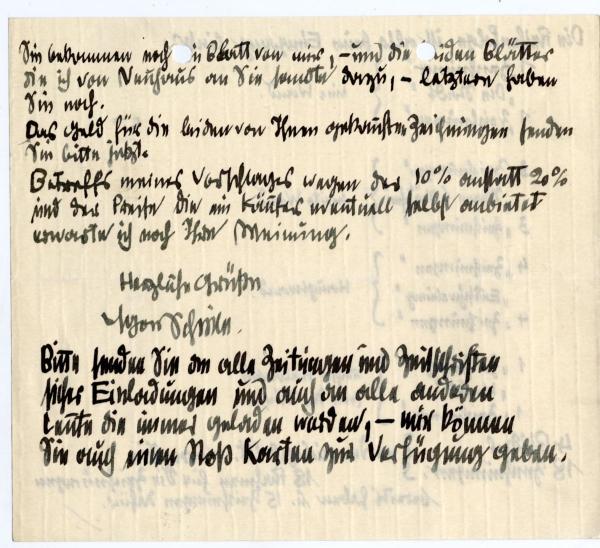 Sie bekommen noch ein Blatt von mir, – und die beiden Blätter
die ich von Neuhaus an Sie sandte dazu, – letztere haben
Sie noch.
Das Geld für die beiden von Ihnen gekauften Zeichnungen senden
Sie bitte jetzt.
Betreffs meines Vorschlages wegen der 10% anstatt 20%
und der Preise die ein Käufer eventuell selbst anbietet
erwarte ich noch Ihre Meinung.
Herzliche Grüße
Egon Schiele.
Bitte senden Sie an alle Zeitungen und Zeitschriften
sicher Einladungen und auch an alle anderen
Leute die immer geladen werden, – mir können
Sie auch einen Stoß Karten zur Verfügung geben.